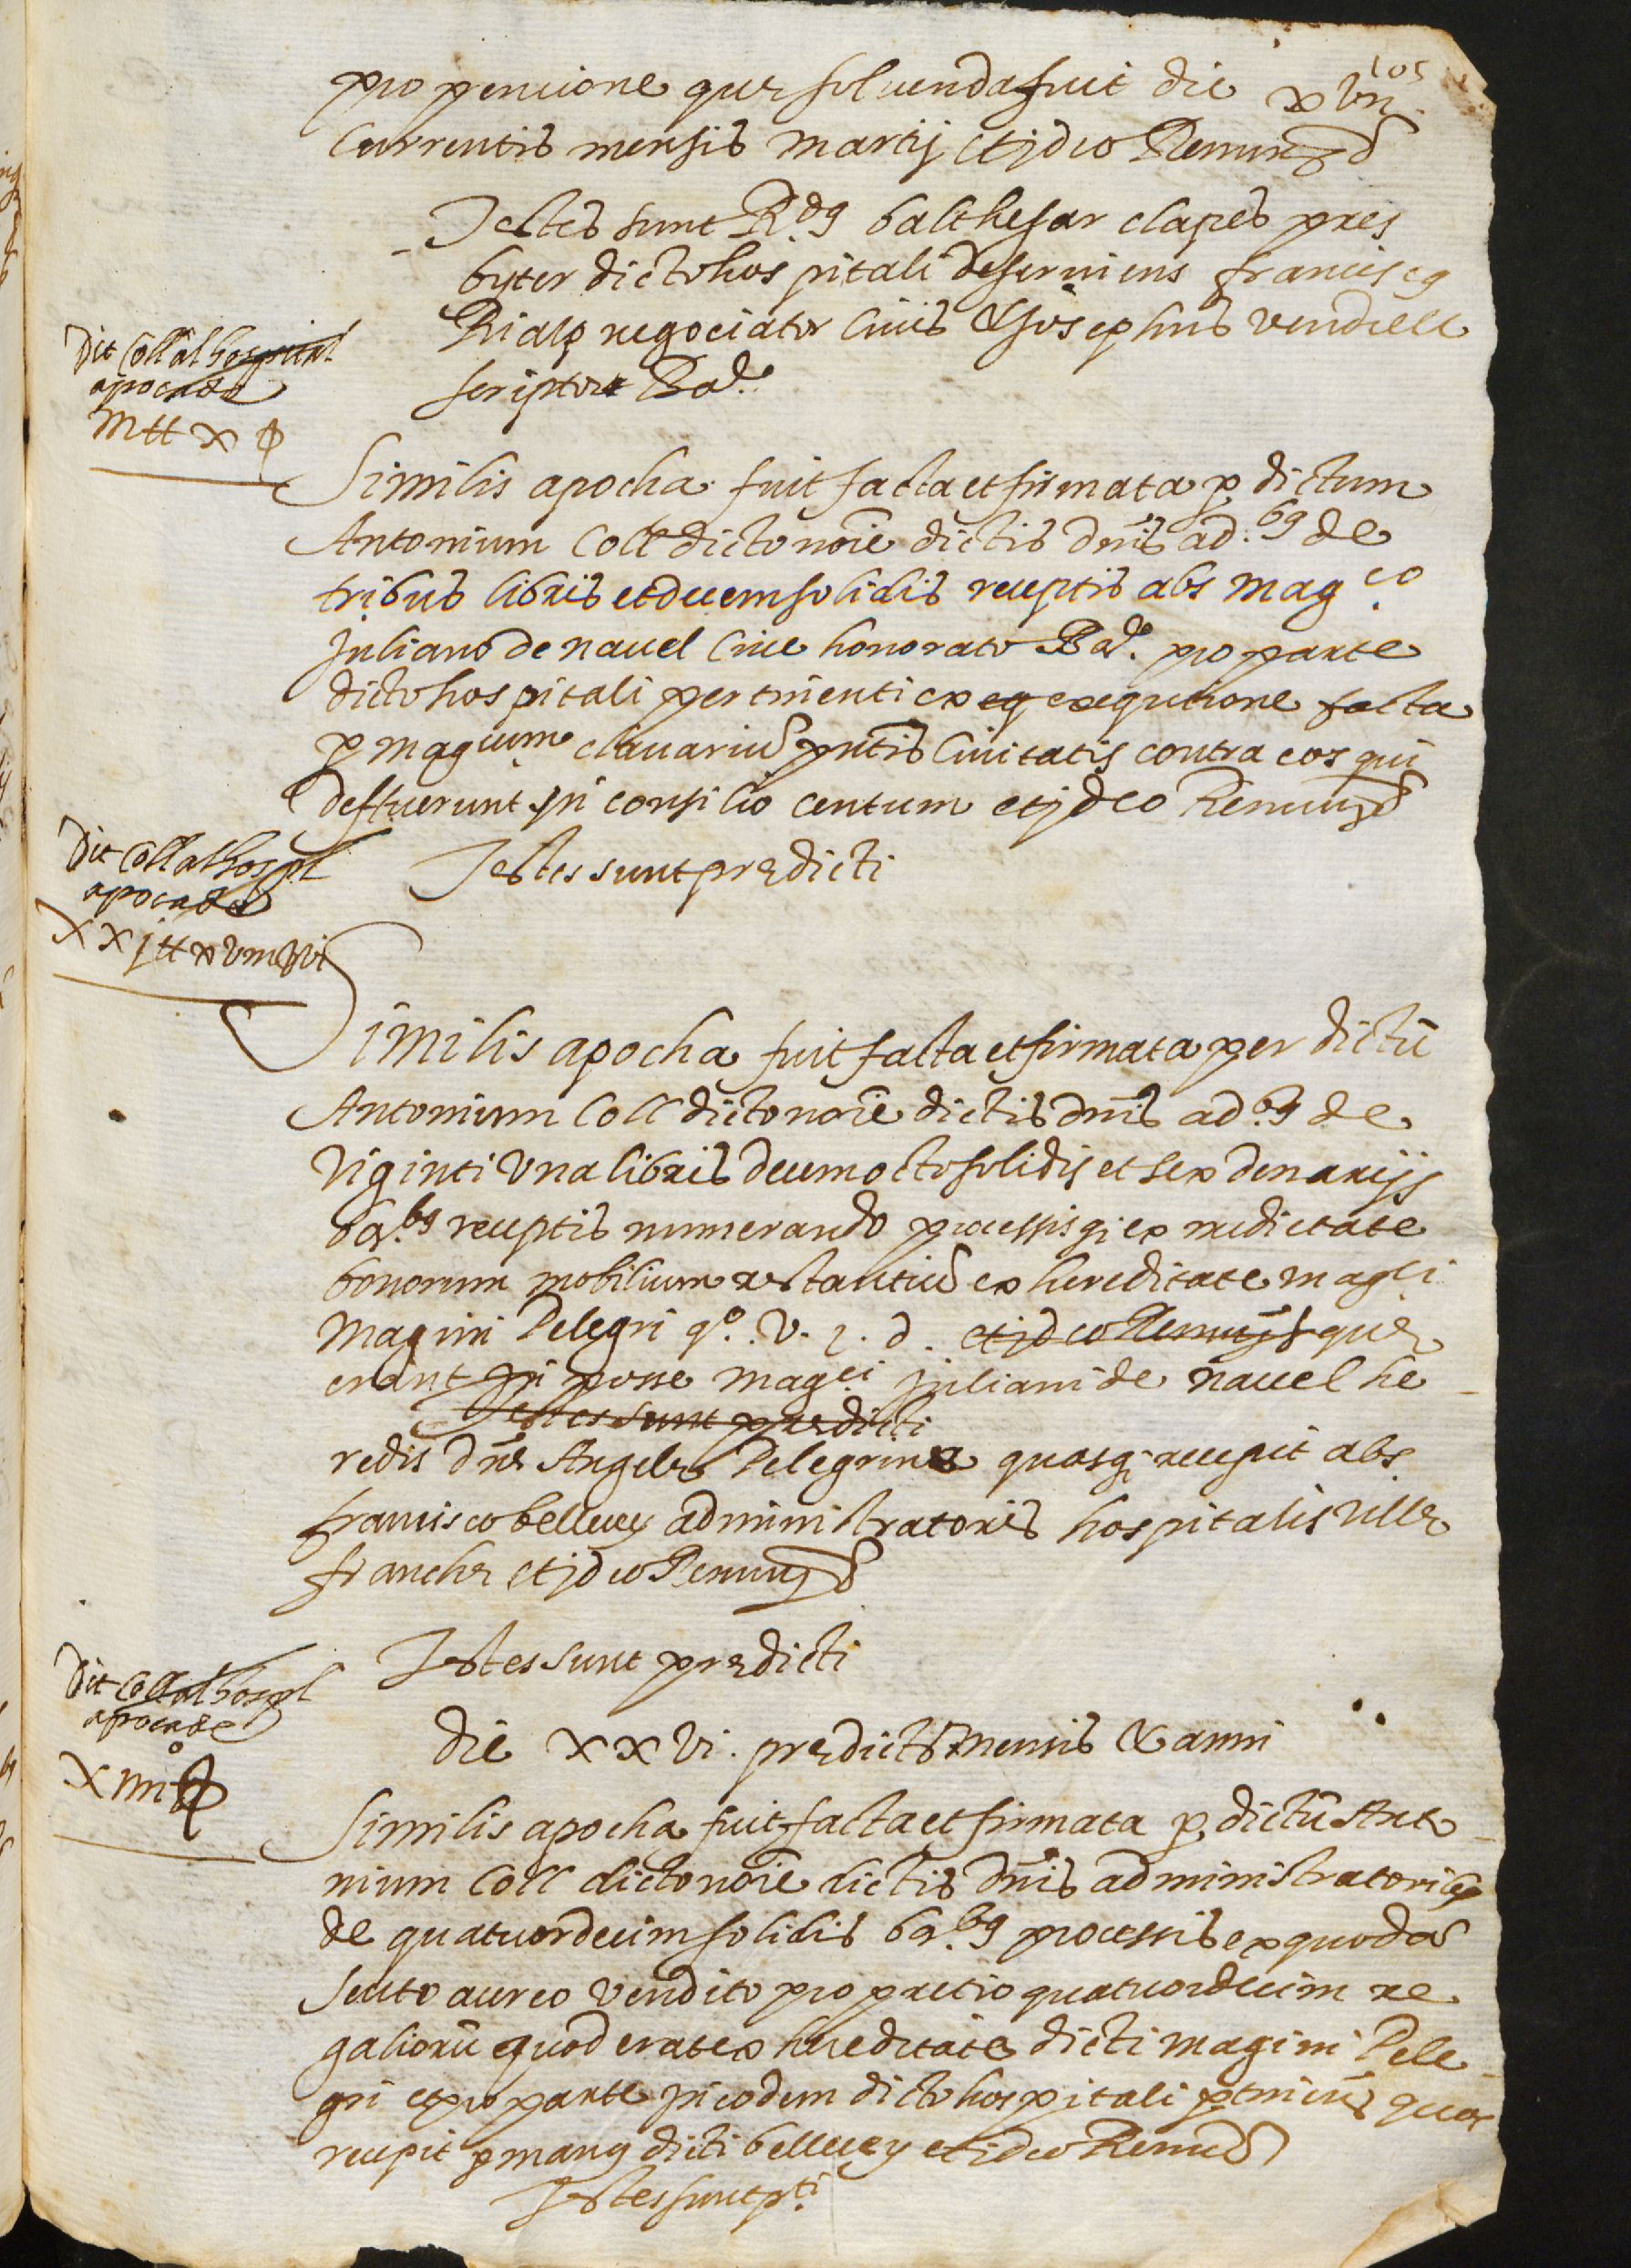 105
pro pencione que solvenda fuit die xviii
currentis mensis martij et ideo Renun^d
Testes sunt R.dus balthesar clapes pres
byter dicto hospitali deserviens franciscus
Rialp negociator civis & Josephus vendrell
scriptor Bar.
Dit Coll al hospital
apoca de
iii ll x s
Similis apocha fuit facta et firmata p dictum
Antonium Coll dicto noīe dictis dnīs ad.bus de
tribus libris et decem solidis receptis abs mag.co
Juliano de navel cive honorato Bar. pro parte
dicto hospitali pertinenti ex eq exequtione facta
p mag.cum clavariū pntīs Civitatis contra eos qui
deffuerunt in consilio centum et ideo Renun^d
Testes sunt predicti
Dit Coll al hospl
apoca de
xxj ll xviii s vi
Similis apocha fuit facta et firmata per dictū
Antonium Coll dicto noīe dictis dnīs ad.bus de
viginti una libris decem octo solidis et sex denarijs
bar.bus receptis numerando processisq; ex medietate
bonorum mobilium restantiū ex hereditate mag.ci
Magini Pelegri q.o V. J. d. et ideo Renun^d que
erant in posse mag.ci Juliani de navel he
Testes sunt predicti
redis dnē Angele Pelegrina quasq; recepit abs
francisco bellvey administratoris hospitalis ville
franche et ideo Renun^d
Testes sunt predicti
Dit Coll al hospl
apoca de
xiiii s
die xxvi. predictor mensis & anni
Similis apocha fuit facta et firmata p dictū Anto
nium Coll dicto noīe dictis dnīs administratoribus
de quatuordecim solidis bar.bus processis ex quodā
scuto aureo vendito pro pretio quatuordecim re
galiorū quod erat ex hereditate dicti magini Pele
gri et pro parte in eodem dicto hospitali ptinen quos
recepit p manus dicti bellvey et ideo Renun^d
Testes sunt p.ti